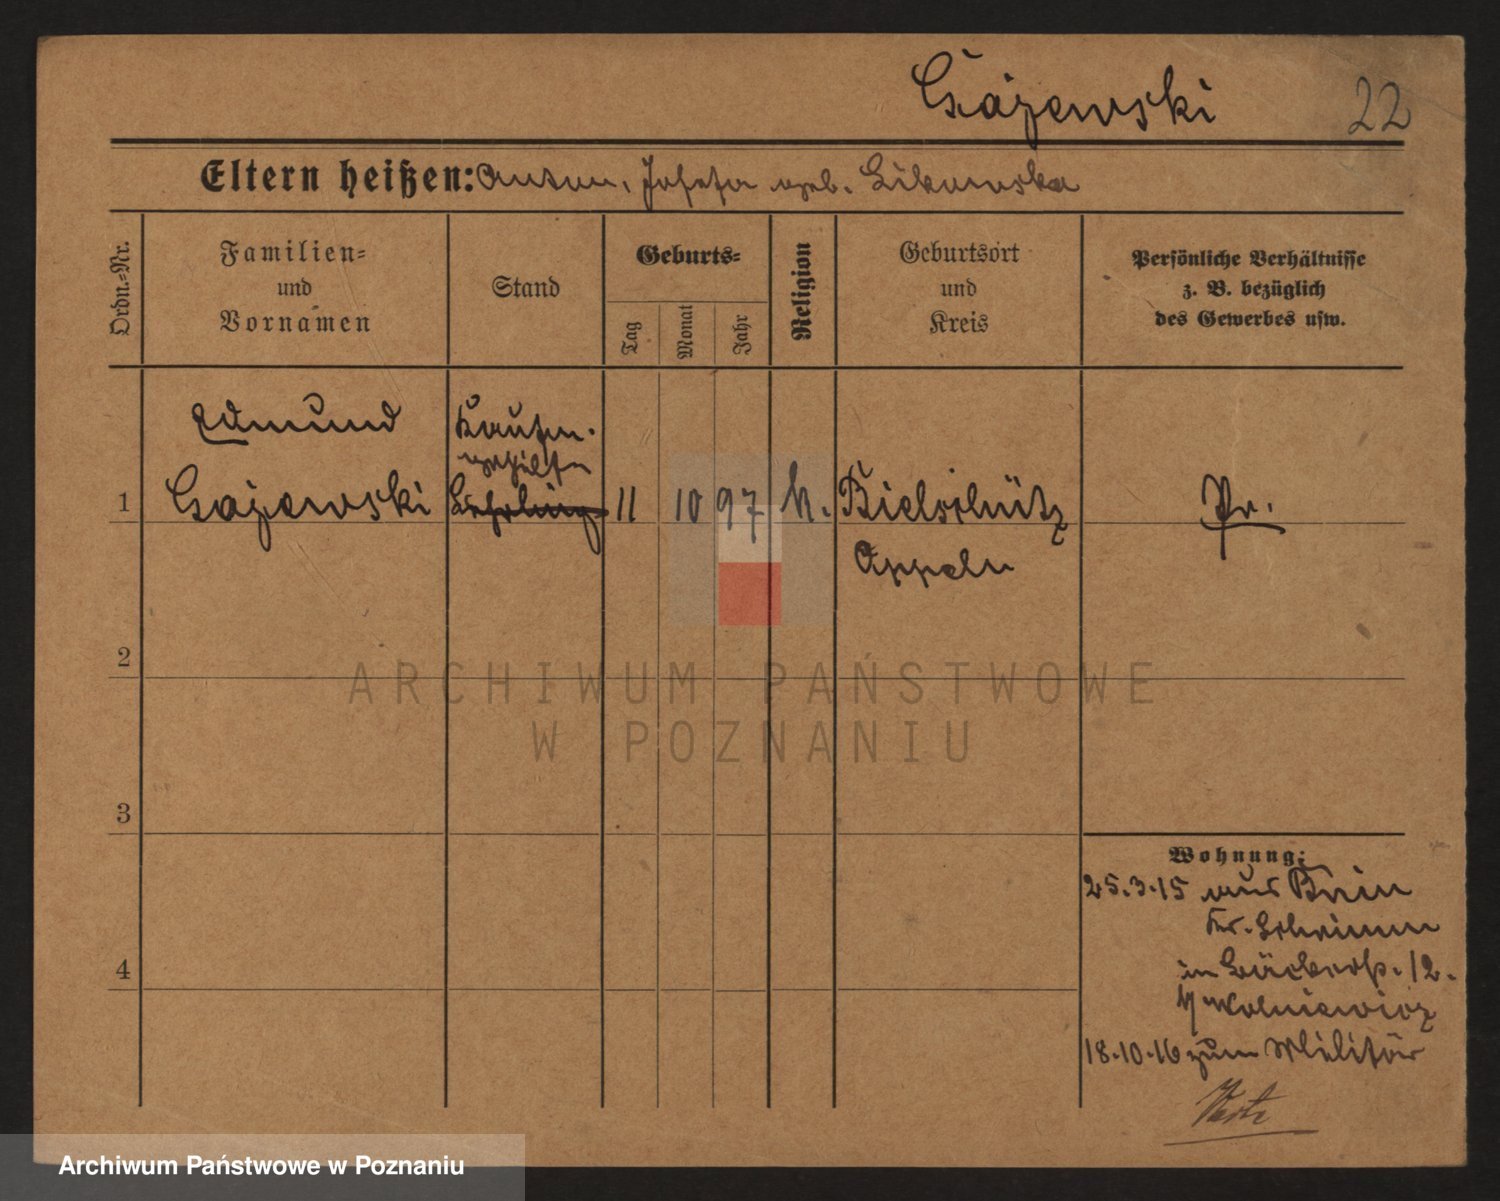 Gajewski 22
Eltern heißen: Anton, Josefa geb. Libowska
Ordn.-Nr.
Familien-
und
Vornamen
Stand
Geburts-
Tag
Monat
Jahr
Religion
Geburtsort
und
Kreis
Persönliche Verhältnisse
z. B. bezüglich
des Gewerbes usw.
Edmund
Kaufm.
gehilfe
1 Gajewski Lehrling 11 10 97 k. Bielschütz Pr.
Oppeln
2
3
4
Wohnung:
25.3.15 aus Bnin
Kr. Schrimm
in Bäckerst. 12.
b/ Wolniewicz
18.10.16 zum Militär
ARCHIWUM PAŃSTWOWE
W POZNANIU
Archiwum Państwowe w Poznaniu